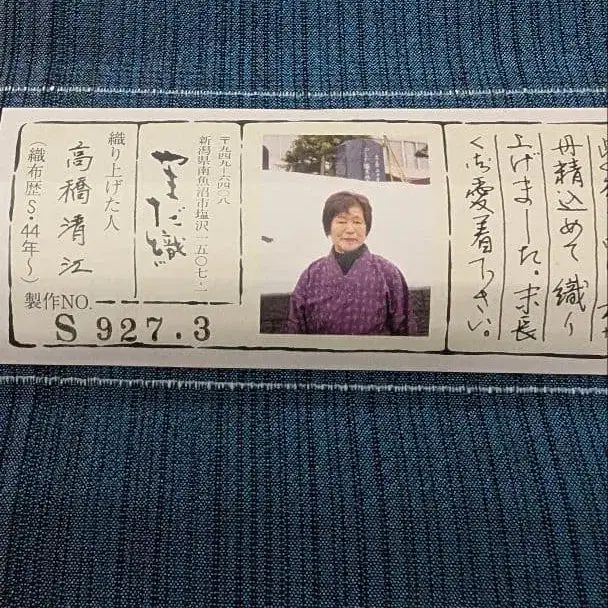 丹精込めて織り
上げました。末長
くご愛着下さい。
〒九四九-六四〇八
新潟県南魚沼市塩沢一五〇七-一
やまだ織
織り上げた人
高橋清江
(織布歴S・44年~)
製作NO.
S 927.3